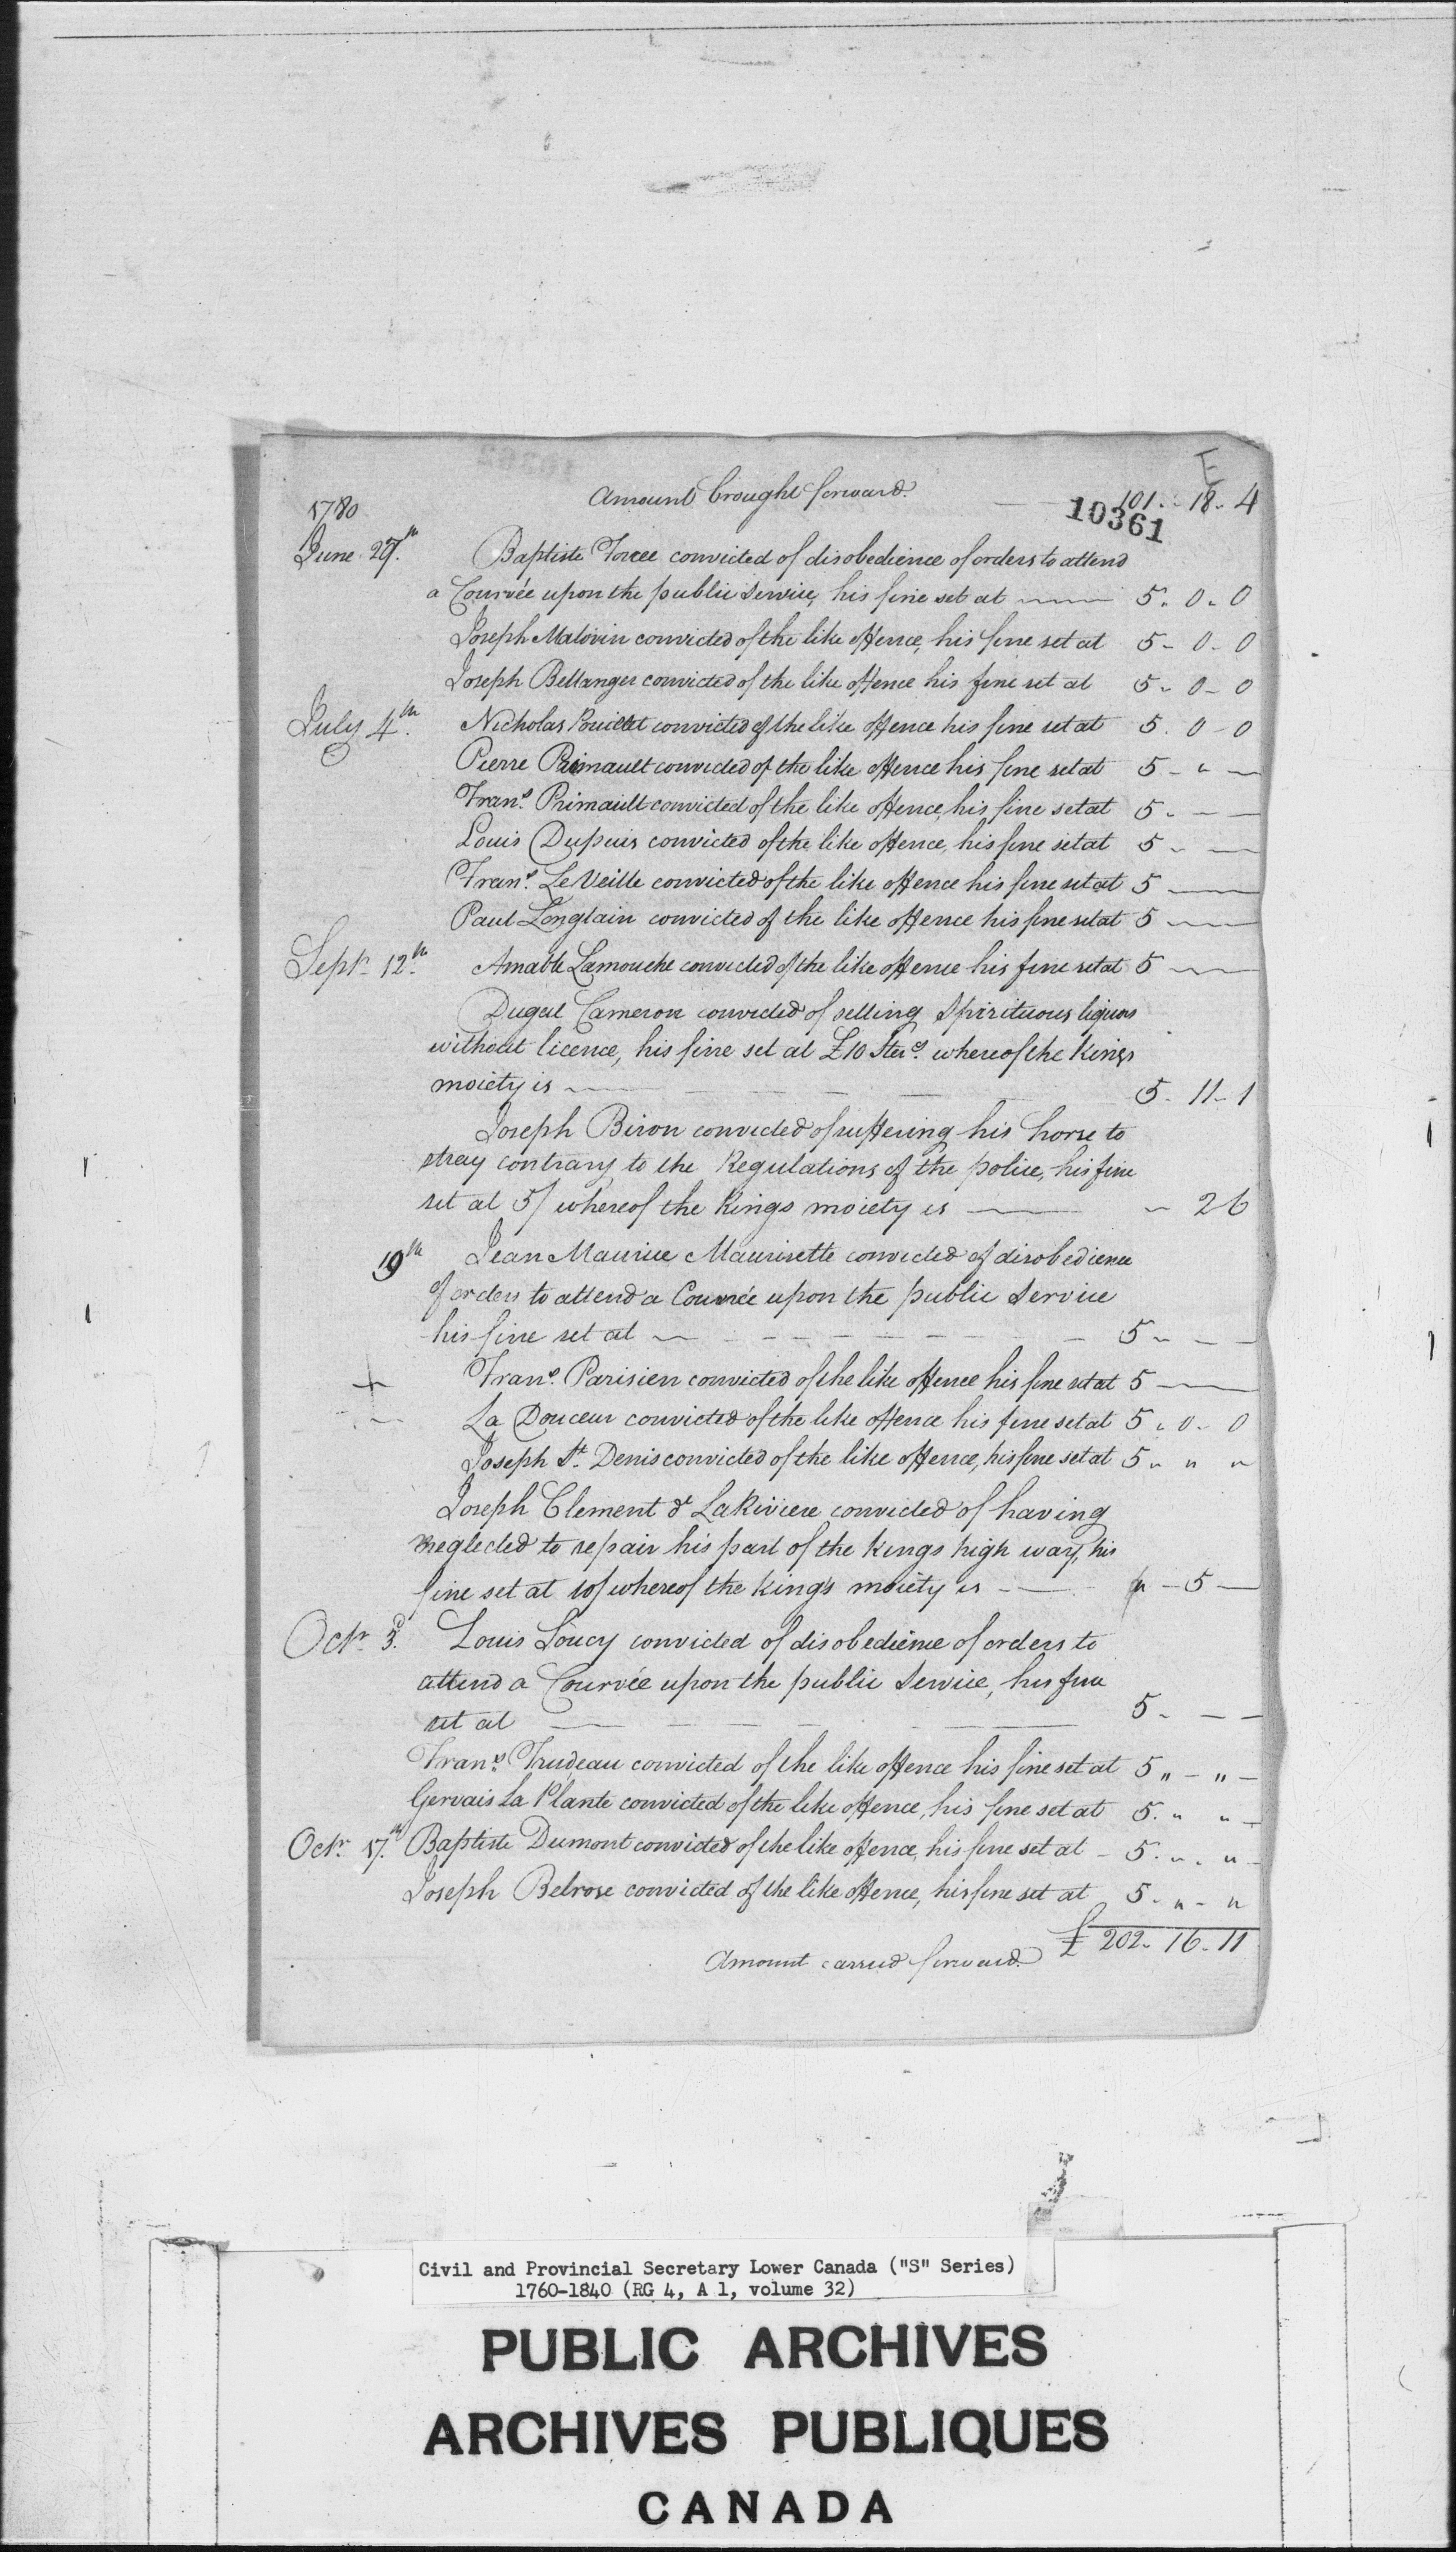 E
Amount brought forward. 101 - 18 - 4
10361
1780
June 27th. Baptiste convicted of disobedience of orders to attend
a Courvée upon the public Service, his fine set at 5 - 0 - 0
Joseph Malovin convicted of the like offence, his fine set at 5 - 0 - 0
Joseph Bellanger convicted of the like offence his fine set at 5 - 0 - 0
July 4th. Nicholas convicted of the like offence his fine set at 5 . 0 - 0
Pierre Primault convicted of the like offence his fine set at 5 - " —
Frans. Primault convicted of the like offence, his fine set at 5 - — —
Louis Dupuis convicted of the like offence, his fine set at 5 - —
Frans. Le Veille convicted of the like offence his fine set at 5 ——
Paul Longlain convicted of the like offence his fine set at 5 ——
Septr. 12th. Amable Lamouche convicted of the like offence his fine set at 5 ——
Dugal Cameron convicted of selling Spirituous liquors
without licence, his fine set at £10 Sterg. whereof the Kings
moiety is — 5 - 11 - 1
Joseph Biron convicted of suffering his horse to
stray contrary to the Regulations of the police, his fine
set at 5/ whereof the Kings moiety is — - 2 6
19th Jean Maurice Maurisette convicted of disobedience
of orders to attend a Courvée upon the public Service
his fine set at — 5 - — —
+ Frans. Parisien convicted of the like offence his fine set at 5 ——
La Douceur convicted of the like offence his fine set at 5 . 0 - 0
Joseph St. Denis convicted of the like offence, his fine set at 5 " " "
Joseph Clement dt LaRiviere convicted of having
neglected to repair his part of the Kings high way, his
fine set at 10/ whereof the King's moiety is — " - 5 —
Octr. 3d. Louis Soucy convicted of disobedience of orders to
attend a Courvée upon the public Service, his fine
set at — 5 - — —
Frans. Trudeau convicted of the like offence his fine set at 5 " - " -
Gervais La Plante convicted of the like offence, his fine set at 5 . " " -
Octr. 17th. Baptiste Dumont convicted of the like offence, his fine set at - 5 . " . " -
Joseph Belrose convicted of the like offence, his fine set at 5 - " - "
£ 202 - 16 - 11
Amount carried forward.
Civil and Provincial Secretary Lower Canada ("S" Series)
1760-1840 (RG 4, A 1, volume 32)
PUBLIC ARCHIVES
ARCHIVES PUBLIQUES
CANADA